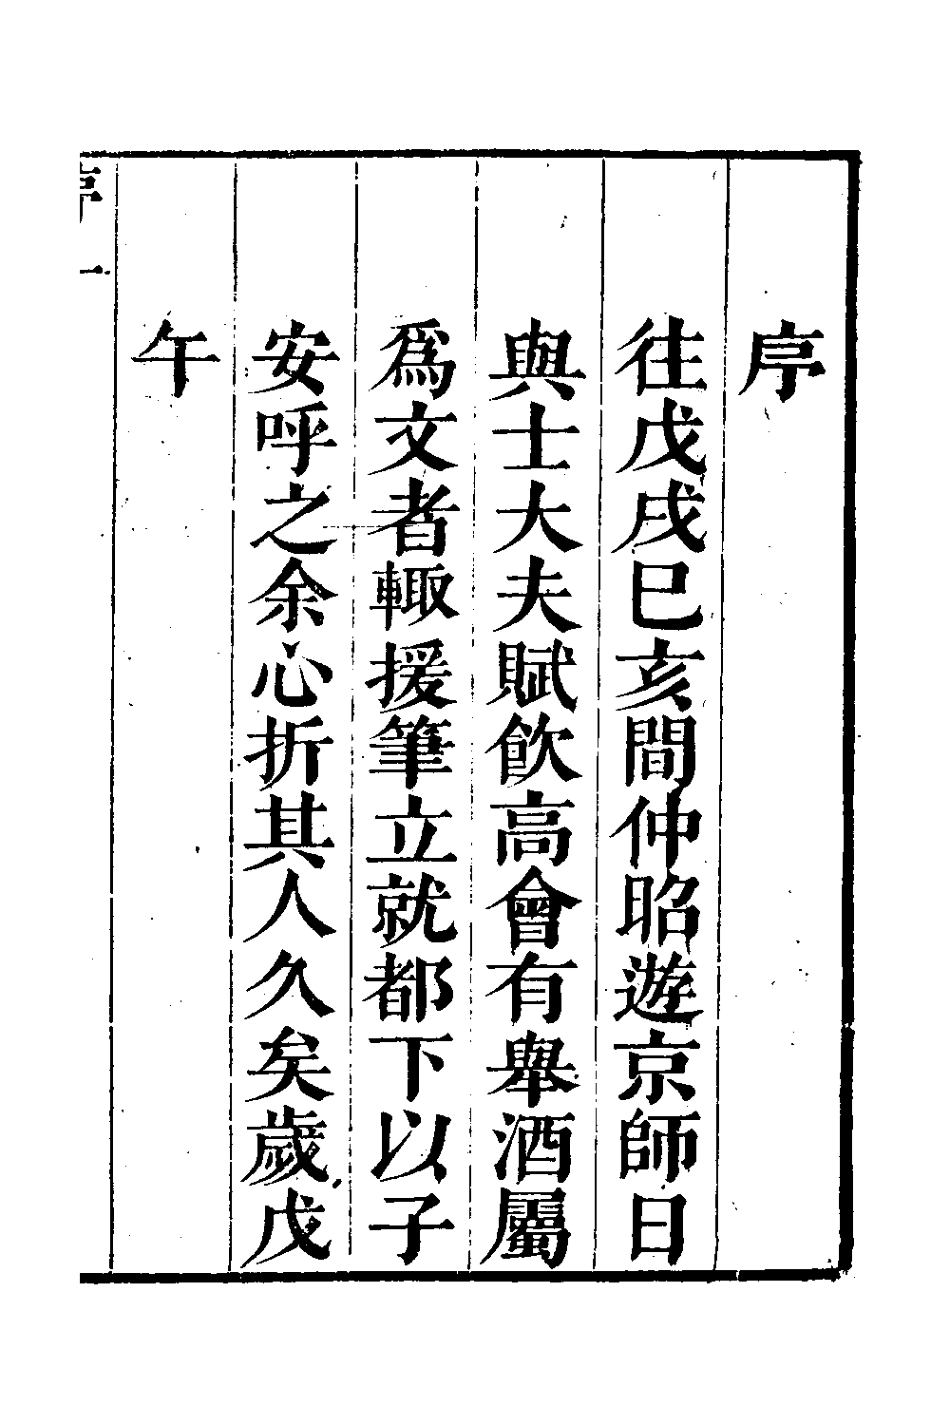 序
往戊戌巳亥間仲昭遊京師日
與士大夫賦飲高會有舉酒屬
爲文者輙援筆立就都下以子
安呼之余心折其人久矣歲戊
午
序一